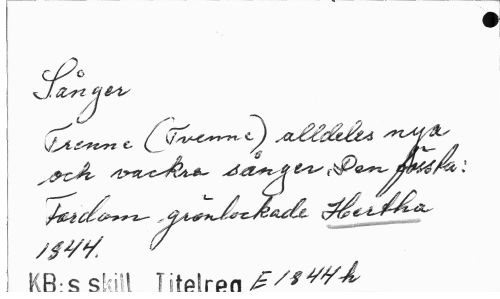 Sånger
Trenne (Tvenne) alldeles nya
och vackra sånger. Den första:
Fordom grönlockade Hertha
1844.
KB:s skill. Titelreg E 1844 h